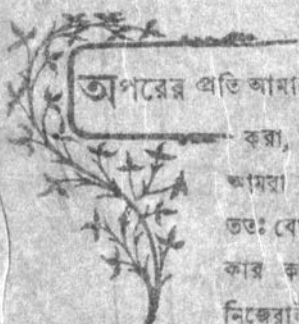 অপরের প্রতি আমা
করা,
আমরা
ততঃ বে
কার ক
নিজেরা